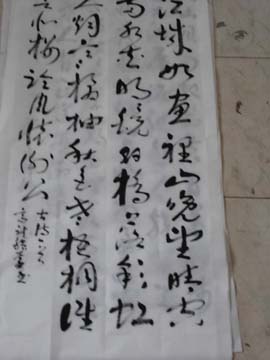 江城如画里山晚望晴空
两水夹明镜双橋落彩虹
人烟寒橘柚秋色老梧桐谁
念北楼上临风怀谢公
古诗一首